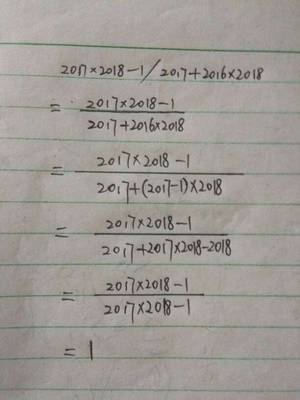 2017×2018-1/2017+2016×2018
= 2017×2018-1
2017+2016×2018
= 2017×2018-1
2017+(2017-1)×2018
= 2017×2018-1
2017+2017×2018-2018
= 2017×2018-1
2017×2018-1
= 1